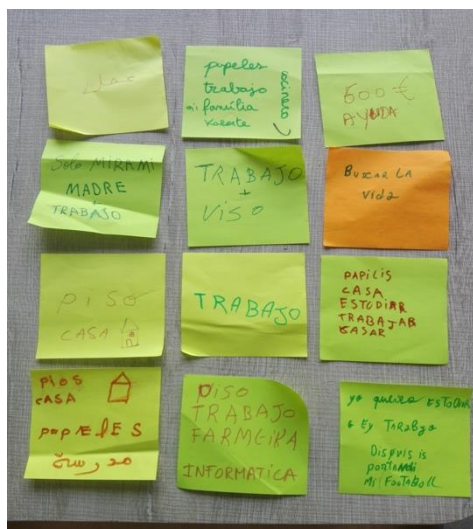 عمل
papeles
trabajo
mi familia
karate
cocinero
600 €
AYUDA
Solo MIRA MI
MADRE
+
TRABAJO
TRABAJO
+
VISO
BUSCAR LA
vida
PISO
CASA
TRABAJO
PAPILIS
CASA
ESTUDIAR
TRABAJAR
CASAR
PIOS
CASA
POPELES
PISO
TRABAJO
FARMGIKA
INFORMATICA
yo quiero ESTUDIAR
Dispuis is
Mi FooTaBoLL